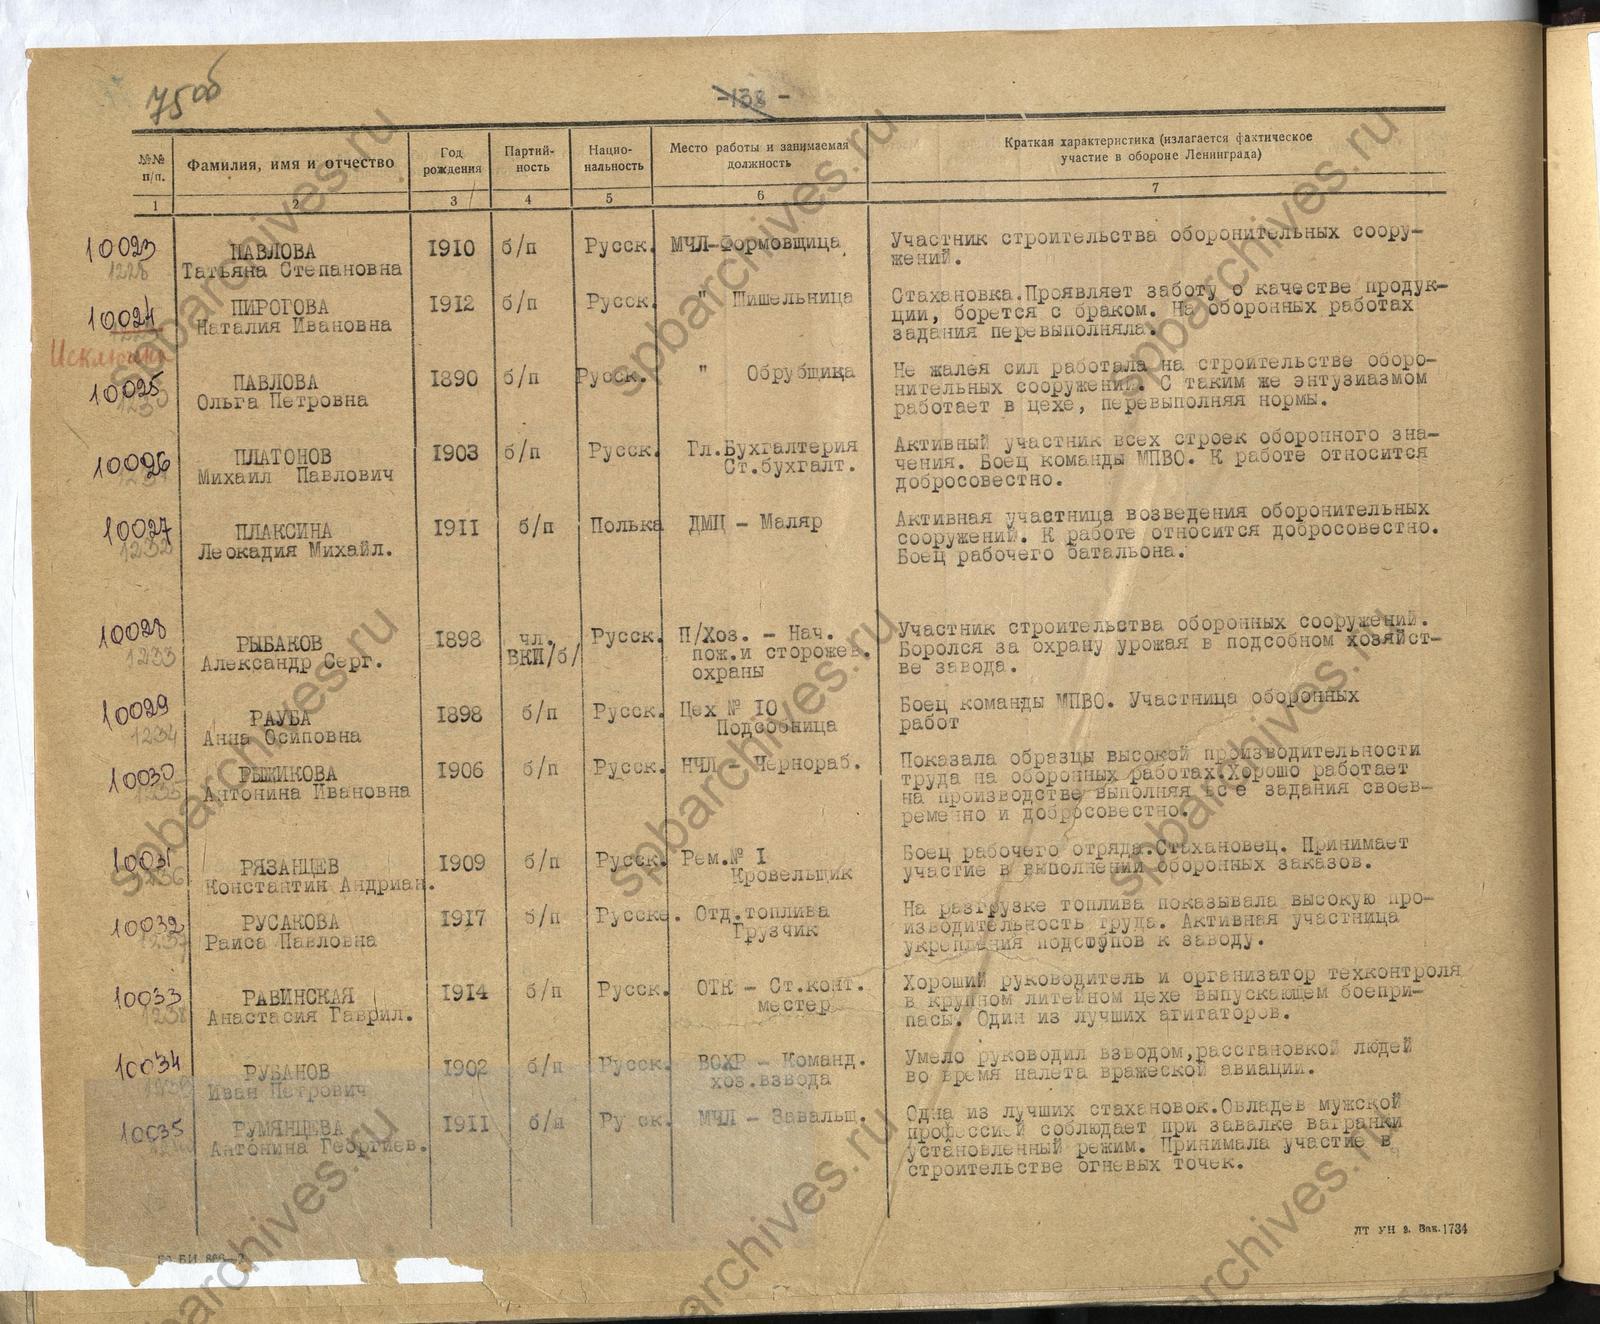 75об
-138 -
№№ п/п. Фамилия, имя и отчество Год рождения Партий-ность Нацио-нальность Место работы и занимаемая должность Краткая характеристика (излагается фактическое участие в обороне Ленинграда)
1 2 3 4 5 6 7
10023 ПАВЛОВА 1910 б/п Русск. МЧЛ-Формовщица Участник строительства оборонительных соору-
1228 Татьяна Степановна жений.
10024 ПИРОГОВА 1912 б/п Русск. " Шишельница Стахановка.Проявляет заботу о качестве продук-
Наталия Ивановна ции, борется с браком. На оборонных работах
задания перевыполняла.
Исключена
10025 ПАВЛОВА 1890 б/п Русск. " Обрубщица Не жалея сил работала на строительстве оборо-
Ольга Петровна нительных сооружений. С таким же энтузиазмом
работает в цехе, перевыполняя нормы.
10026 ПЛАТОНОВ 1903 б/п Русск. Гл.Бухгалтерия Активный участник всех строек оборонного зна-
Михаил Павлович Ст.бухгалт. чения. Боец команды МПВО. К работе относится
добросовестно.
10027 ПЛАКСИНА 1911 б/п Полька ДМЦ - Маляр Активная участница возведения оборонительных
1232 Леокадия Михайл. сооружений. К работе относится добросовестно.
Боец рабочего батальона.
10028 РЫБАКОВ 1898 чл. Русск. П/Хоз. - Нач. Участник строительства оборонных сооружений.
1233 Александр Серг. ВКП/б/ пож.и сторожев. Боролся за охрану урожая в подсобном хозяйст-
охраны ве завода.
10029 РАУБА 1898 б/п Русск. Цех № 10 Боец команды МПВО. Участница оборонных
1234 Анна Осиповна Подсобница работ
10030 РЫЖИКОВА 1906 б/п Русск. НЧЛ - Чернораб. Показала образцы высокой производительности
1235 Антонина Ивановна труда на оборонных работах.Хорошо работает
на производстве выполняя все задания своев-
ременно и добросовестно.
10031 РЯЗАНЦЕВ 1909 б/п Русск. Рем.№ 1 Боец рабочего отряда.Стахановец. Принимает
1236 Константин Андриан. Кровельщик участие в выполнении оборонных заказов.
10032 РУСАКОВА 1917 б/п Русске. Отд.топлива На разгрузке топлива показывала высокую про-
1237 Раиса Павловна Грузчик изводительность труда. Активная участница
укрепления подступов к заводу.
10033 РАВИНСКАЯ 1914 б/п Русск. ОТК - Ст.конт. Хороший руководитель и организатор техконтроля
1238 Анастасия Гаврил. местер в крупном литейном цехе выпускающем боепри-
пасы. Один из лучших агитаторов.
10034 РУБАНОВ 1902 б/п Русск. ВОХР - Команд. Умело руководил взводом,расстановкой людей
1239 Иван Петрович хоз.взвода во время налета вражеской авиации.
10035 РУМЯНЦЕВА 1911 б/п Ру ск. МЧЛ - Завальщ. Одна из лучших стахановок.Овладев мужской
Антонина Георгиев. профессией соблюдает при завалке вагранки
установленный режим. Принимала участие в
строительстве огневых точек.
ЛТ УН з. Зак.1734
spbarchives.ru